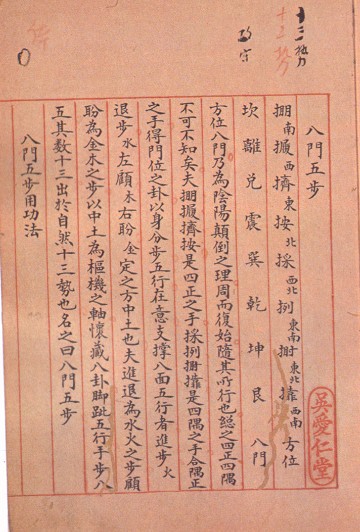 十三勢
八門五步
掤南 㨊西 擠東 按北 採西北 挒東南 肘東北 靠西南 方位
坎 離 兌 震 巽 乾 坤 艮 八門
方位八門乃為陰陽顛倒之理周而復始隨其所行也總之四正四隅
不可不知矣夫掤㨊擠按是四正之手採挒肘靠是四隅之手合隅正
之手得門位之卦以身分步五行在意支撐八面五行者進步火
退步水左顧木右盼金定之方中土也夫進退為水火之步顧
盼為金木之步以中土為樞機之軸懷藏八卦脚跐五行手步八
五其數十三出於自然十三勢也名之曰八門五步
八門五步用功法
吳愛仁堂